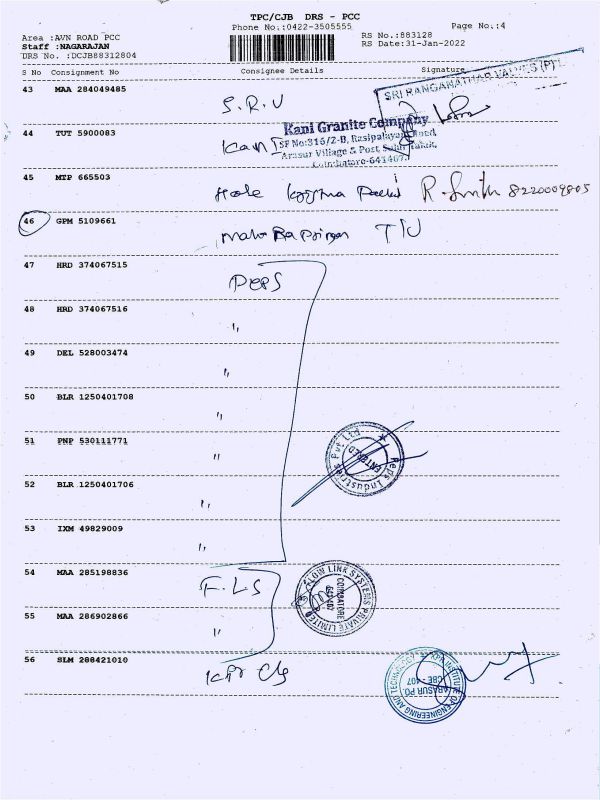 TPC/CJB DRS - PCC
Phone No.:0422-3505555
Page No.:4
Area :AVN ROAD PCC
RS No.:883128
Staff :NAGARAJAN
RS Date:31-Jan-2022
DRS No. :DCJB88312804
S No Consignment No Consignee Details Signature
43 MAA 284049485
S.R.U
SRI RANGANATHAR VALVES (P)
44 TUT 5900083
Kani
Kani Granite Company
SF No:316/2-B, Rasipalayam Road,
Arasur Village & Post, Sulur Taluk,
Coimbatore-641407.
45 MTP 665503
R. 8220009805
46 GPM 5109661
47 HRD 374067515
PEPS
48 HRD 374067516
"
49 DEL 528003474
"
50 BLR 1250401708
"
51 PNP 530111771
"
Peps Industries Pvt Ltd
ENTERED
52 BLR 1250401706
"
53 IXM 49829009
"
54 MAA 285198836
F.L.S
FLOW LINK SYSTEMS PRIVATE LIMITED
COIMBATORE
641 407
55 MAA 286902866
"
56 SLM 288421010
KPR INSTITUTE OF ENGINEERING AND TECHNOLOGY
ARASUR PO.
CBE - 407